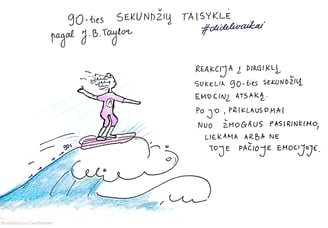 90-ties SEKUNDŽIŲ TAISYKLĖ
pagal J.B.Taylor
#didelivaikai
REAKCIJA Į DIRGIKLĮ
SUKELIA 90-TIES SEKUNDŽIŲ
EMOCINĮ ATSAKĄ.
PO JO, PRIKLAUSOMAI
NUO ŽMOGAUS PASIRINKIMO,
LIEKAMA ARBA NE
TOJE PAČIOJE EMOCIJOJE.
90s